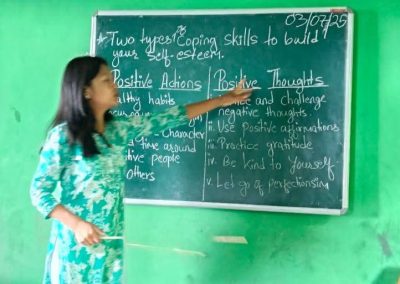 03/07/25
* Two types of Coping skills to build
your self-esteem.
Positive Actions
ealthy habits
Character
time around
itive people
others
Positive Thoughts
and challenge
negative thoughts.
ii. Use positive affirmations
iii. Practice gratitude
iv. Be Kind to Yourself.
v. Let go of perfectionism